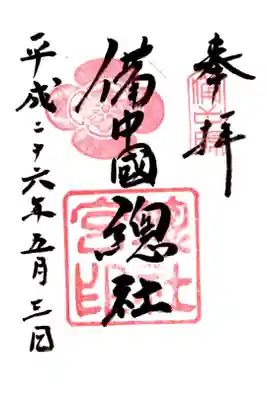 奉拝
備中國總社
總社
宮印
平成二十六年五月三日